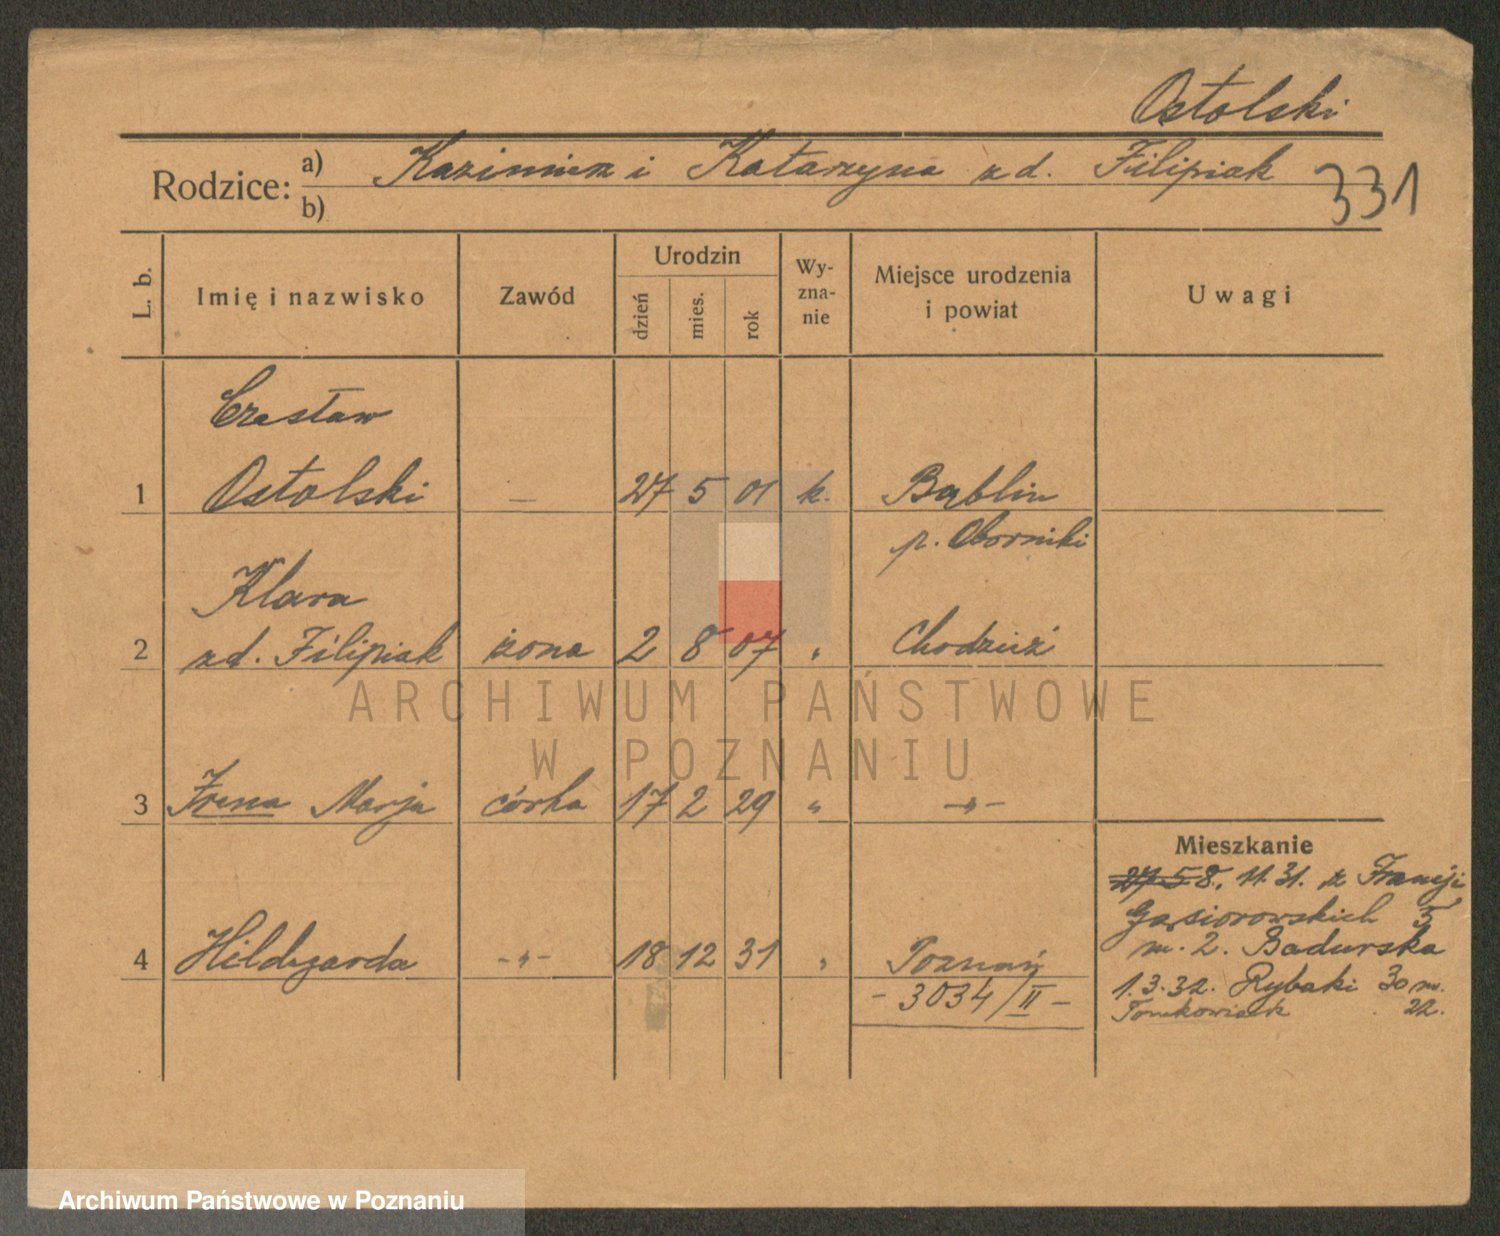 Ostolski
Rodzice: a) Kazimierz i Katarzyna z d. Filipiak
b)
331
L. b.
Imię i nazwisko
Zawód
Urodzin
dzień
mies.
rok
Wy-
zna-
nie
Miejsce urodzenia
i powiat
Uwagi
Czesław
1 Ostolski — 27 5 01 k. Bąblin
p. Oborniki
Klara
2 z d. Filipiak żona 2 8 07 " Chodzież
ARCHIWUM PAŃSTWOWE
W POZNANIU
3 Irena Marja córka 17 2 29 " -"-
Mieszkanie
27 5 8. 11. 31. z Francji
Gąsiorowskich 5
m. 2. Badurska
4 Hildegarda -"- 18 12 31 " Poznań
- 3034/II -
1. 3. 32. Rybaki 30 m.
Tomkowiak 22.
Archiwum Państwowe w Poznaniu